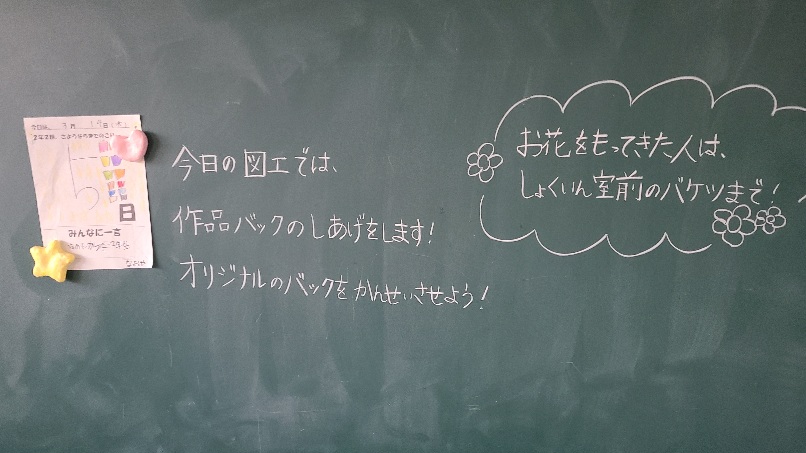 今日の図工では、
作品バックのしあげをします!
オリジナルのバックをかんせいさせよう!
お花をもってきた人は、
しょくいん室前のバケツまで!
5
日
みんなに一言